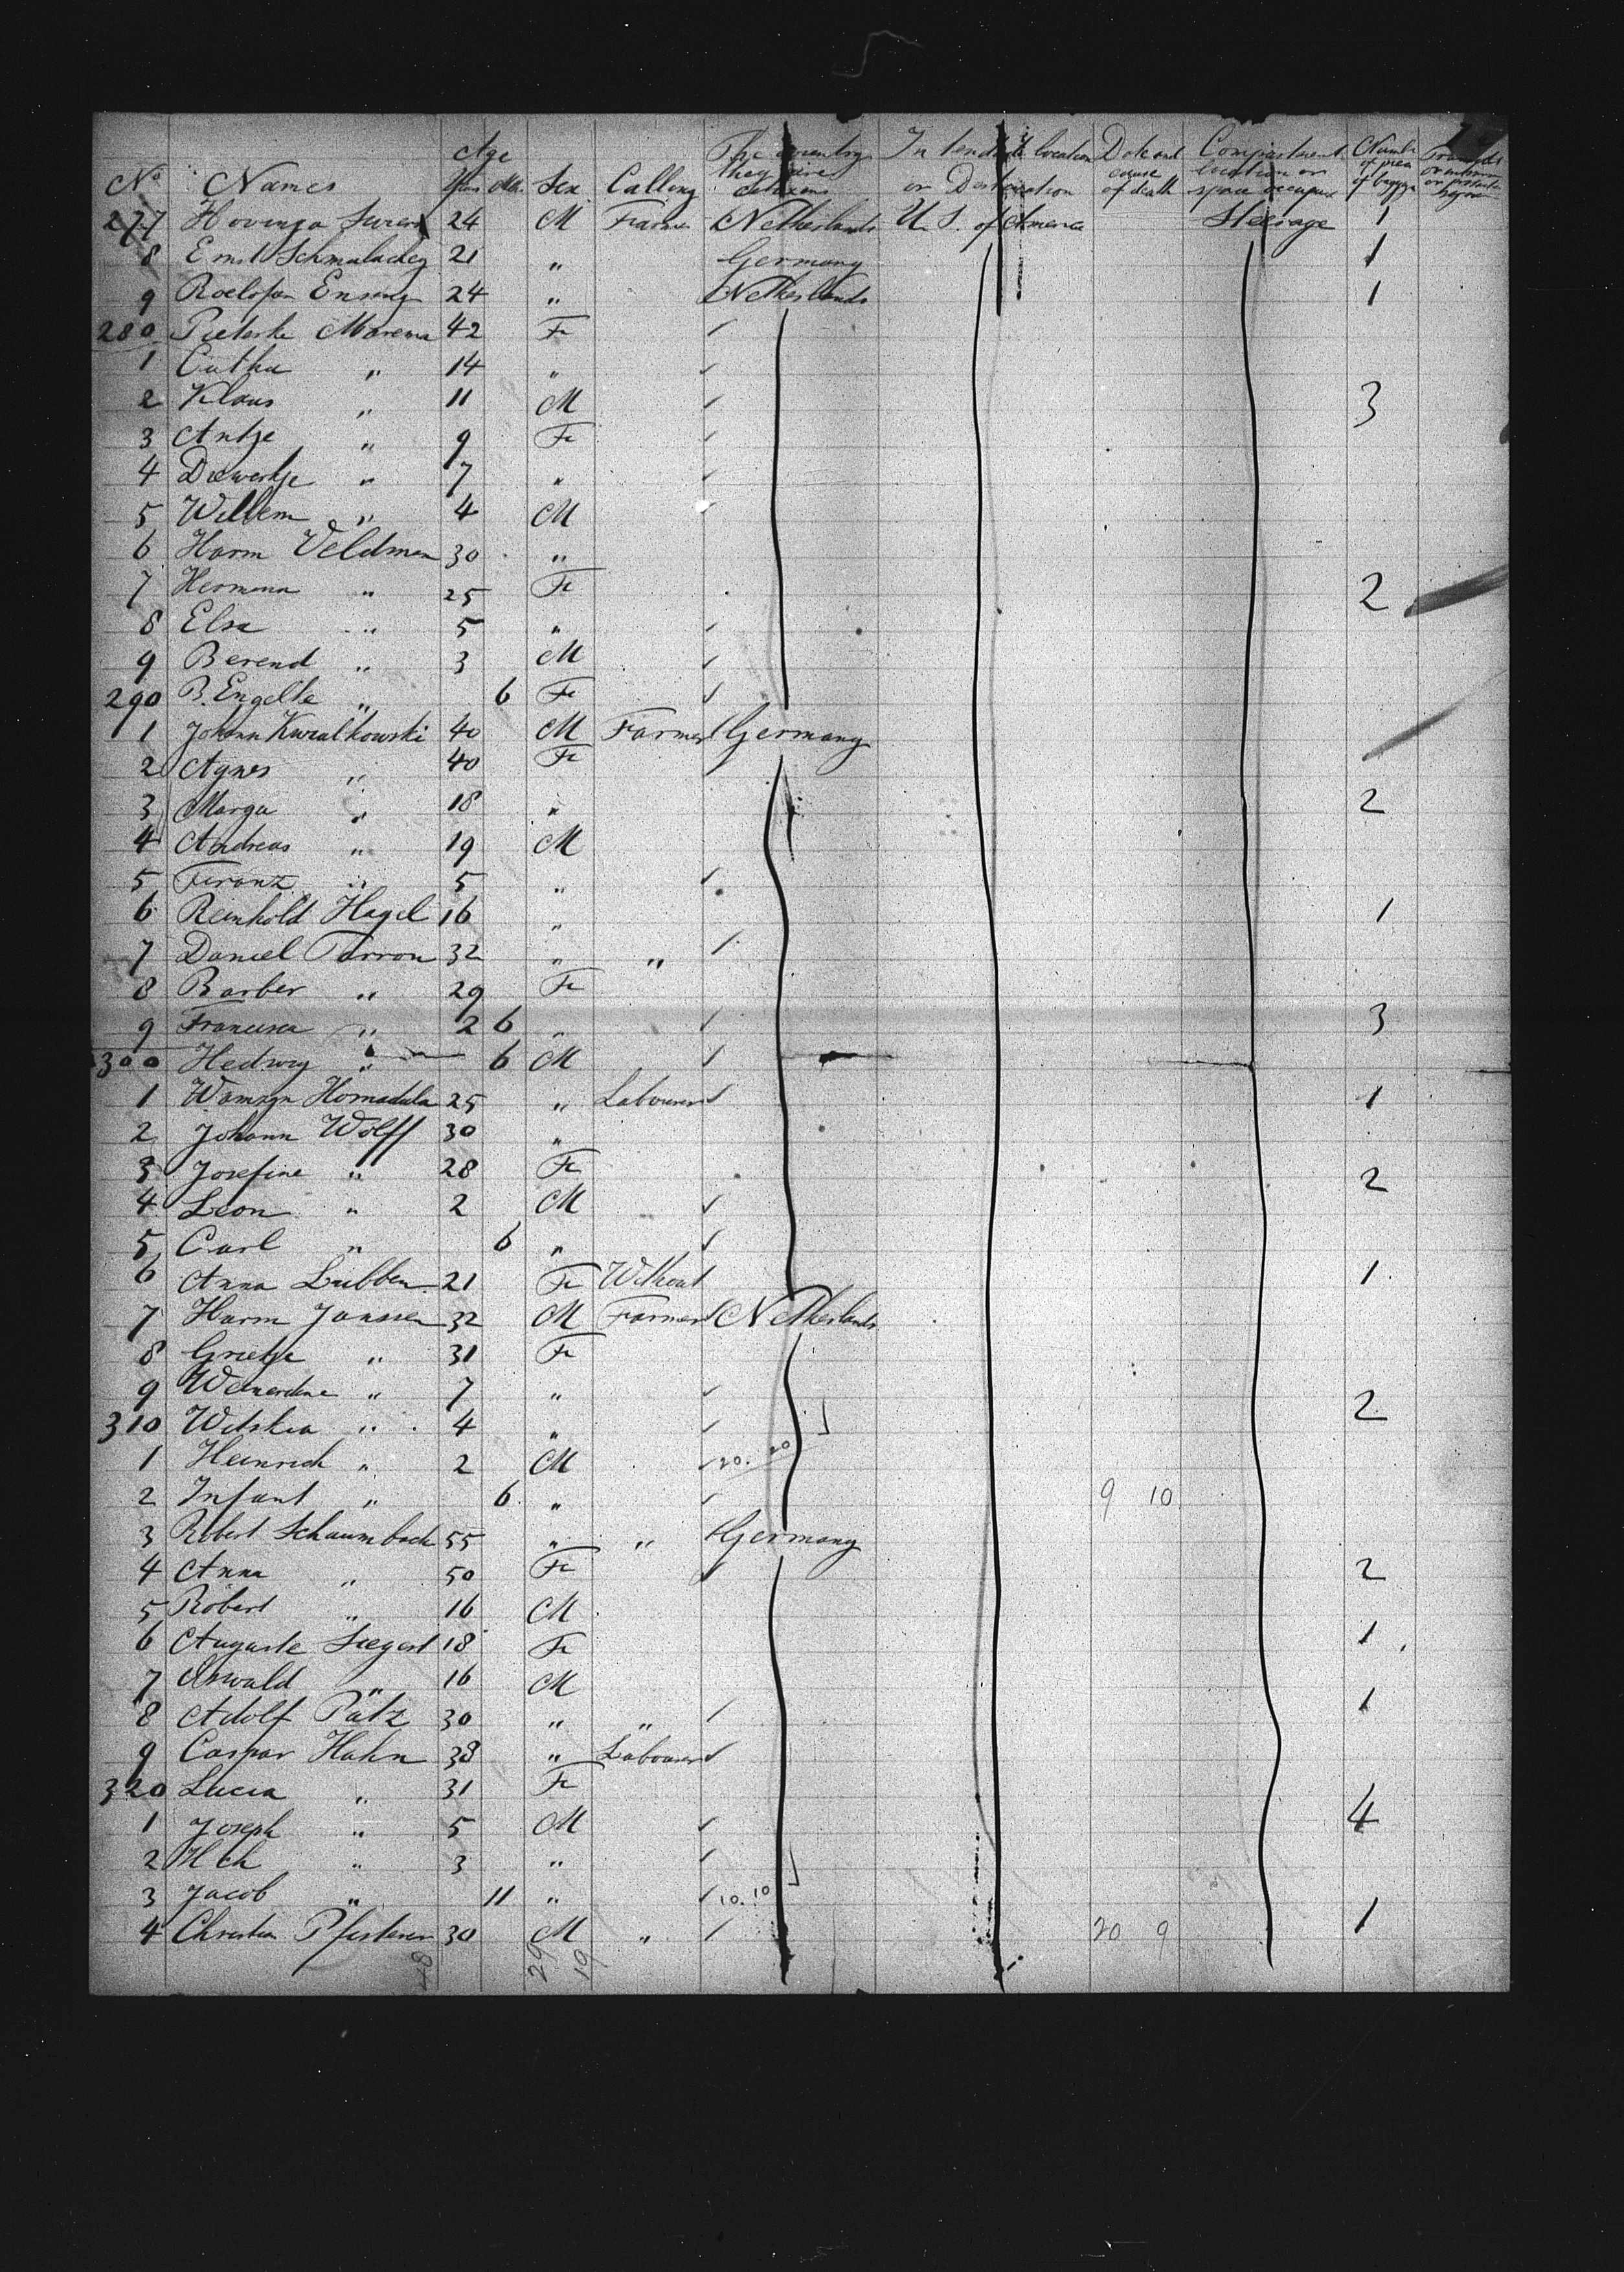 No Names Age Years Mts. Sex Calling The country they are citizens Intended location or Destination Date and cause of death Compartment location or space occupied Number of pieces of baggage Transit
277 Hovinga 24 M Farmer Netherlands U. S. of America Steerage 1
8 Ernst 21 " Germany 1
9 Roelofan 24 " Netherlands 1
280 Pieterke Marema 42 Fe
1 " 14 "
2 Klaus " 11 M 3
3 Antje " 9 Fe
4 Diewertje " 7 "
5 Willem " 4 M
6 Harm Veldman 30 "
7 Hermina " 25 Fe 2
8 Elsa " 5 "
9 Berend " 3 M
290 B. Engelke " 6 Fe
1 Johann Kwialkowski 40 M Farmer Germany
2 Agnes " 40 Fe
3 Marga " 18 " 2
4 Andreas " 19 M
5 Franz " 5 "
6 Reinhold Hagel 16 " 1
7 Daniel Parron 32 " "
8 Barber " 29 Fe
9 Francisca " 2 6 " 3
300 Hedwig " 6 M
1 Homadala 25 " Labourer 1
2 Johann Wolff 30 "
3 Josefine " 28 Fe 2
4 Leon " 2 M
5 Carl " 6 "
6 Anna Lubben 21 Fe Without 1
7 Harm Janssen 32 M Farmer Netherlands
8 Grietje " 31 Fe
9 " 7 " 2
310 " 4 "
1 Heinrich " 2 M 20. 20
2 Infant " 6 " 9 10
3 Robert Schaumbach 55 " " Germany
4 Anna " 50 Fe 2
5 Robert " 16 M
6 Auguste Siegert 18 Fe 1
7 Oswald " 16 M
8 Adolf Pätz 30 " " 1
9 Caspar Hahn 38 " Labourer
320 Lucia " 31 Fe
1 Joseph " 5 M 4
2 Hch " 3 "
3 Jacob " 11 " 10. 10
4 Christian Pfisterer 30 M " 20 9 1
48 29 19